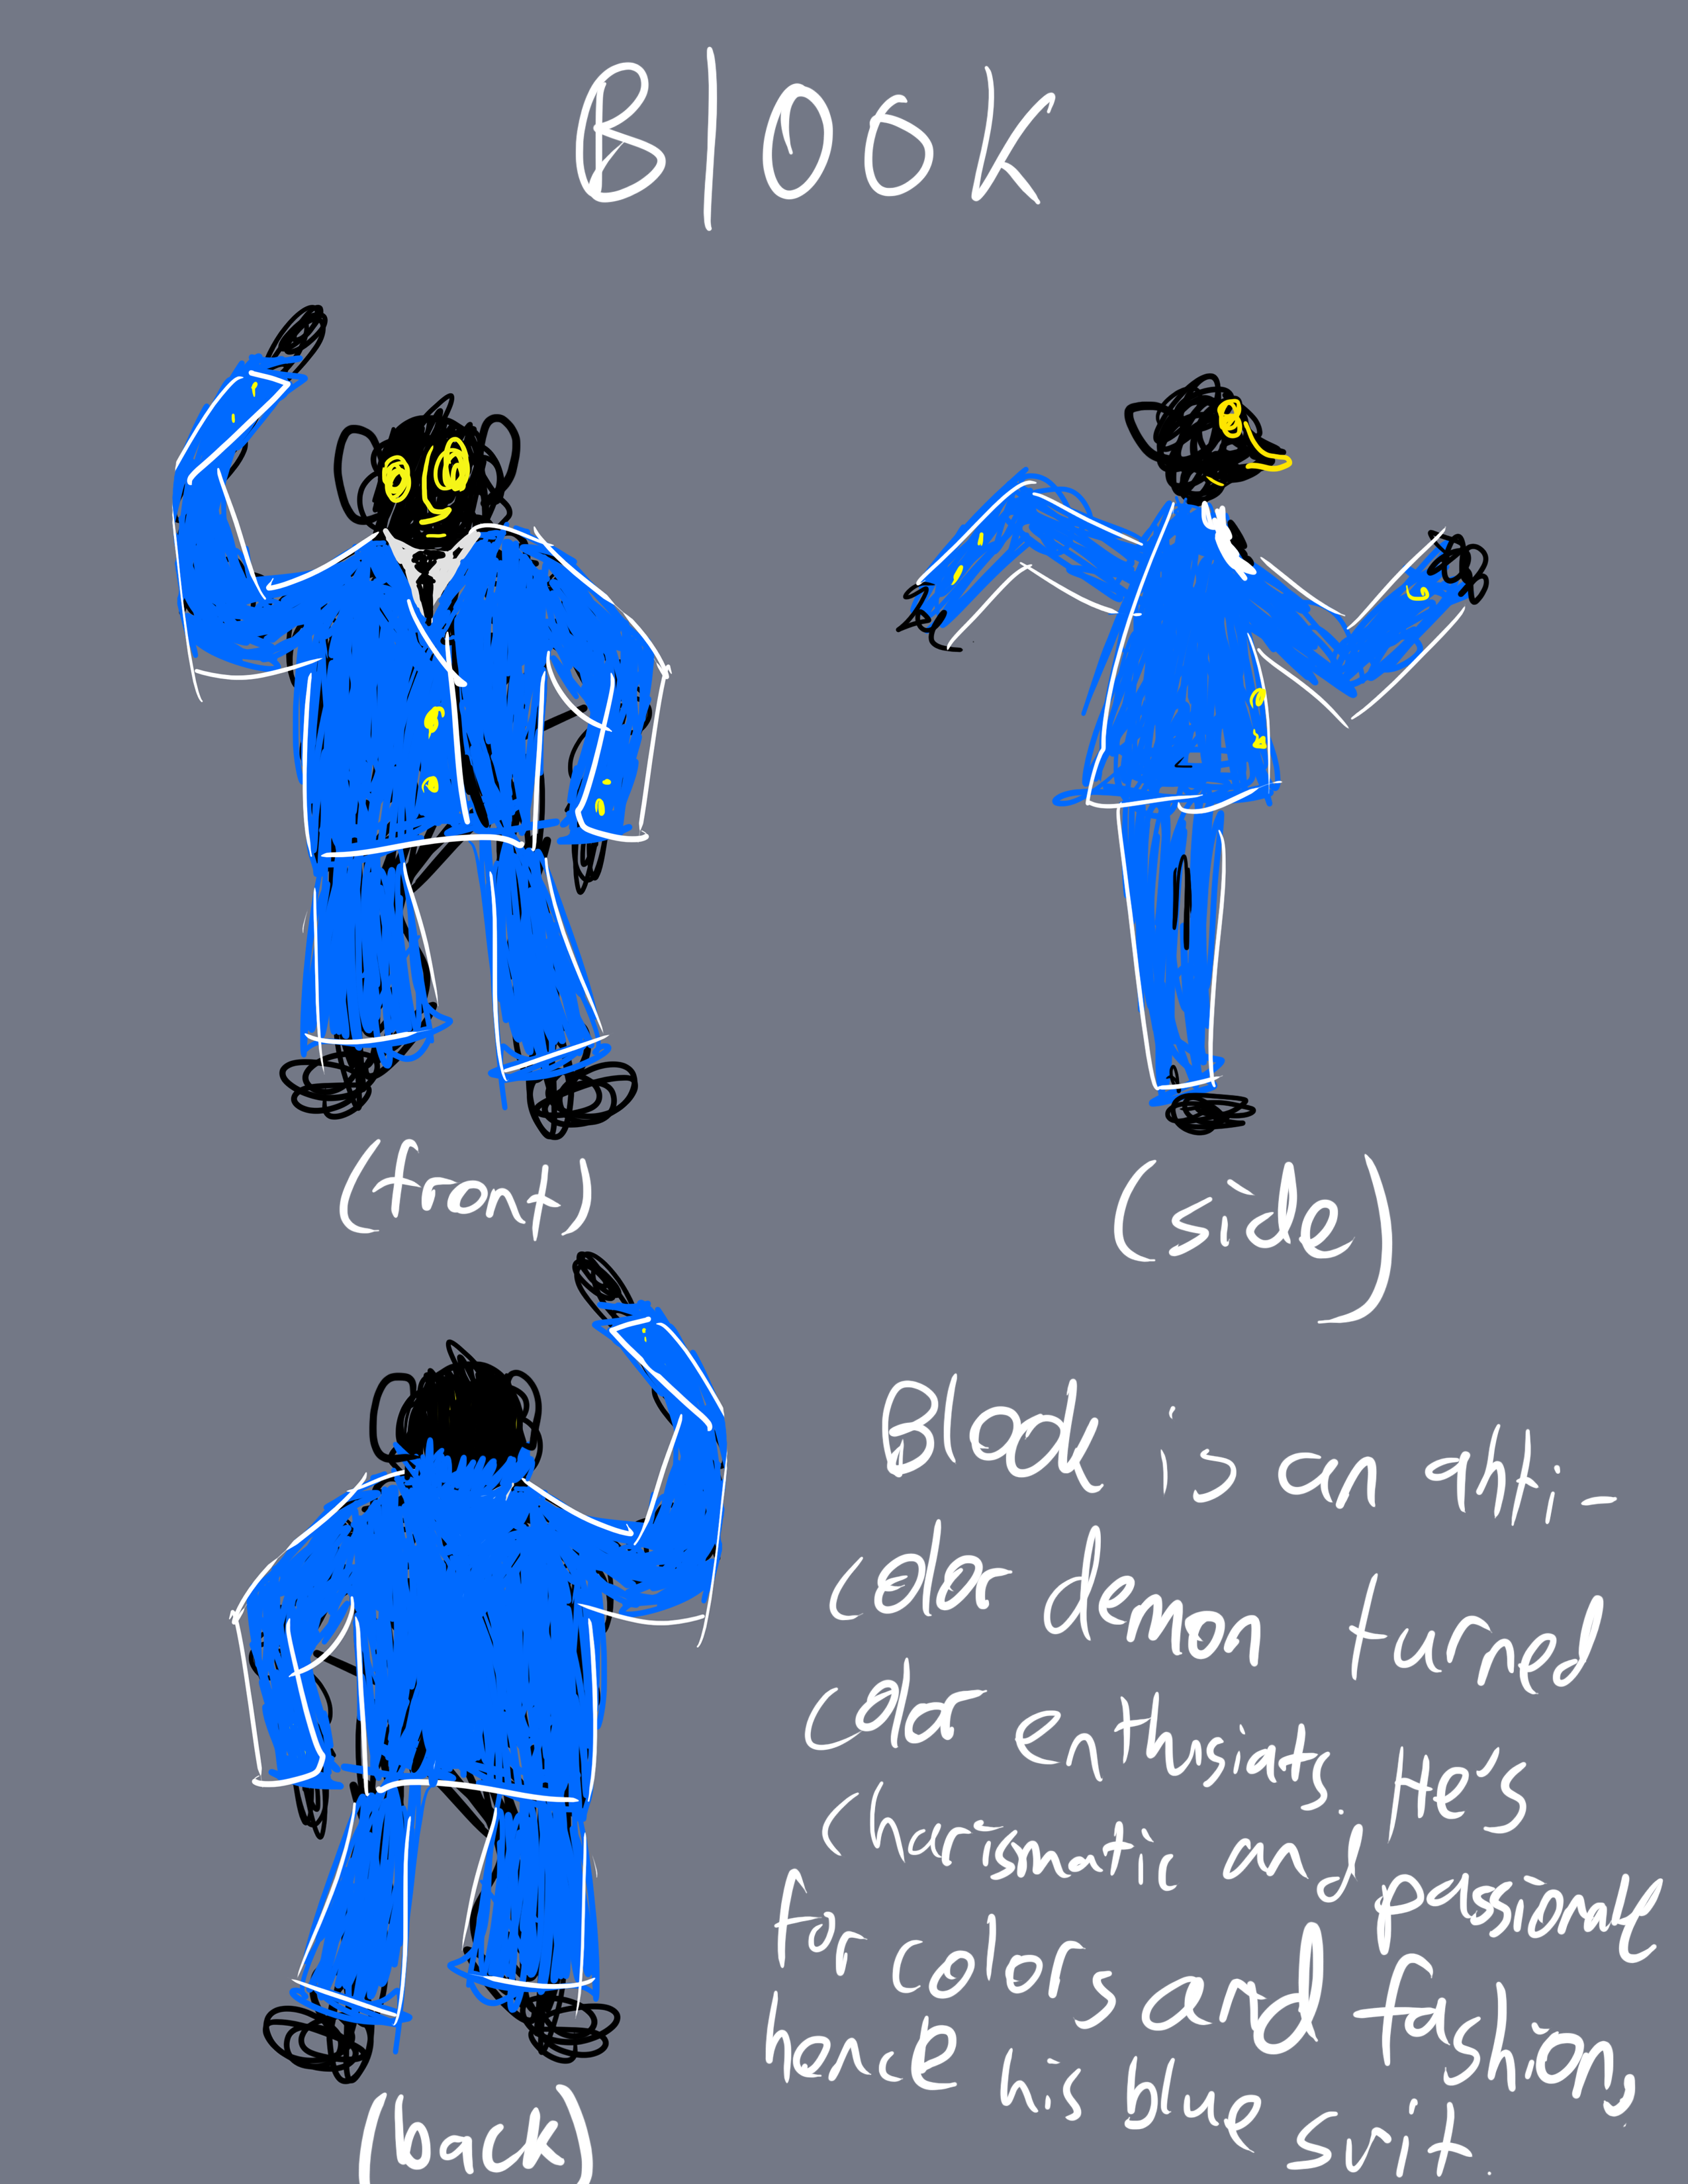 Blook
(front)
(side)
(back)
Blook is an anti-
color demon turned
color enthusiats. He's
charismatic and passionate
for colors and fashion,
hence his blue suit.